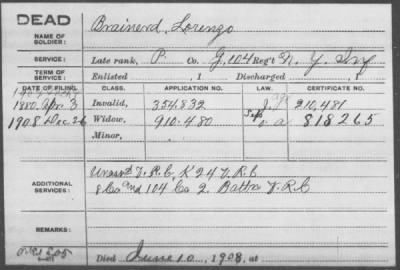 DEAD
NAME OF SOLDIER: Brainerd, Lorenzo
SERVICE: Late rank, P. Co. G, 104 Reg't N. Y. Inf
TERM OF SERVICE: Enlisted , 1 Discharged , 1
DATE OF FILING. CLASS. APPLICATION NO. LAW. CERTIFICATE NO.
1880 Apr. 3 Invalid, 354.832 210,481
1908 Dec. 26 Widow, 910.480 818265
Minor,
ADDITIONAL SERVICES: Unassd V. R. C, K 24 V. R. C
8 Co and 104 Co 2. Battn V. R. C
REMARKS:
Died June 10, 1908, at